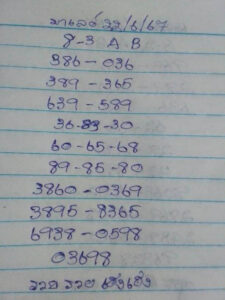 มาเลย์ 22/6/67
8-3 A B
386-036
389-365
639-589
36-83-30
60-65-68
89-85-80
3860-0369
3895-8365
6938-0598
03698
รวย รวย